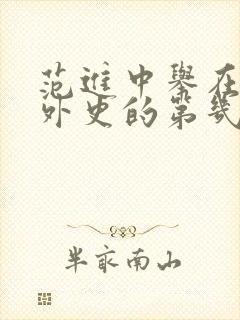 范進中舉在
外史的第幾
半歲南山